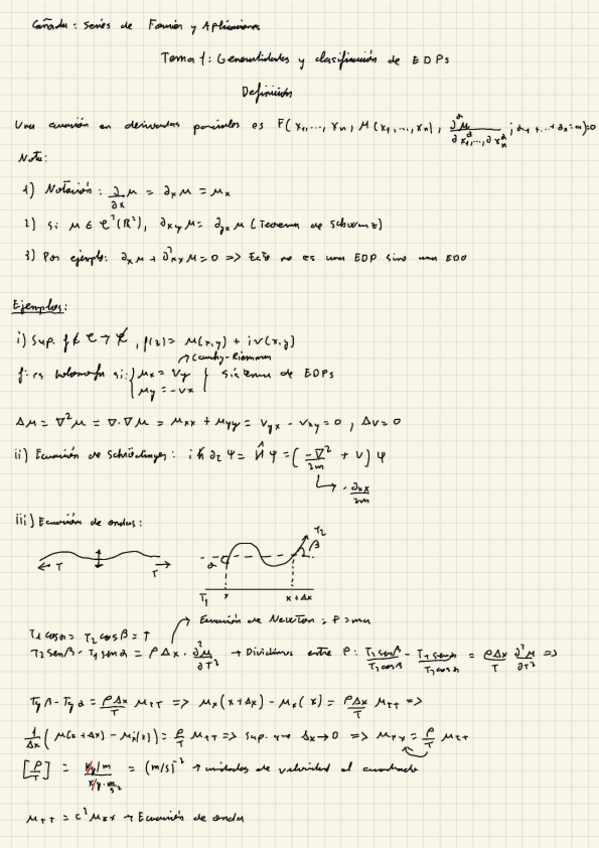 Cañada: Series de Fourier y Aplicaciones
Tema 1: Generalidades y clasificación de EDPs
Definición
Una ecuación en derivadas parciales es F(x₁,...,xₙ, μ(x₁,...,xₙ), ∂^α μ / ∂x₁^α,...,∂xₙ^α ; α₁+...+αₙ=α)=0
Nota:
1) Notación: ∂/∂x μ = ∂ₓμ = μₓ
2) Si μ ∈ C²(ℝ²), ∂xy μ = ∂yx μ (Teorema de Schwarz)
3) Por ejemplo: ∂ₓμ + ∂²ₓₓμ = 0 => Esto no es una EDP sino una EDO
Ejemplos:
i) Sup. f: C → C, f(z) = μ(x,y) + i v(x,y)
→ Cauchy-Riemann
f: es holomorfa si: { μx = vy
μy = -vx } sistema de EDPs
Δμ = ∇²μ = ∇·∇μ = μxx + μyy = vyx - vxy = 0, Δv = 0
ii) Ecuación de Schrödinger: iℏ ∂t ψ = Ĥψ = (-∇²/2m + V) ψ
↳ -∂xx/2m
iii) Ecuación de ondas:
T T α β T₂
T₁ x x+Δx
→ Ecuación de Newton: F=ma
T₁cosα = T₂cosβ = T
T₂senβ - T₁senα = ρΔx · ∂²μ/∂T² → Dividimos entre T₂cosβ: T₂senβ/T₂cosβ - T₁senα/T₁cosα = ρΔx/T ∂²μ/∂T² =>
Tgβ - Tgα = ρΔx/T μTT => μx(x+Δx) - μx(x) = ρΔx/T μTT =>
1/Δx (μ(x+Δx) - μx(x)) = ρ/T μTT => Sup. que Δx→0 => μxx = ρ/T μTT
[ρ/T] = kg/m / kg·m/s² = (m/s)⁻² → unidades de velocidad al cuadrado
μTT = c² μxx → Ecuación de ondas